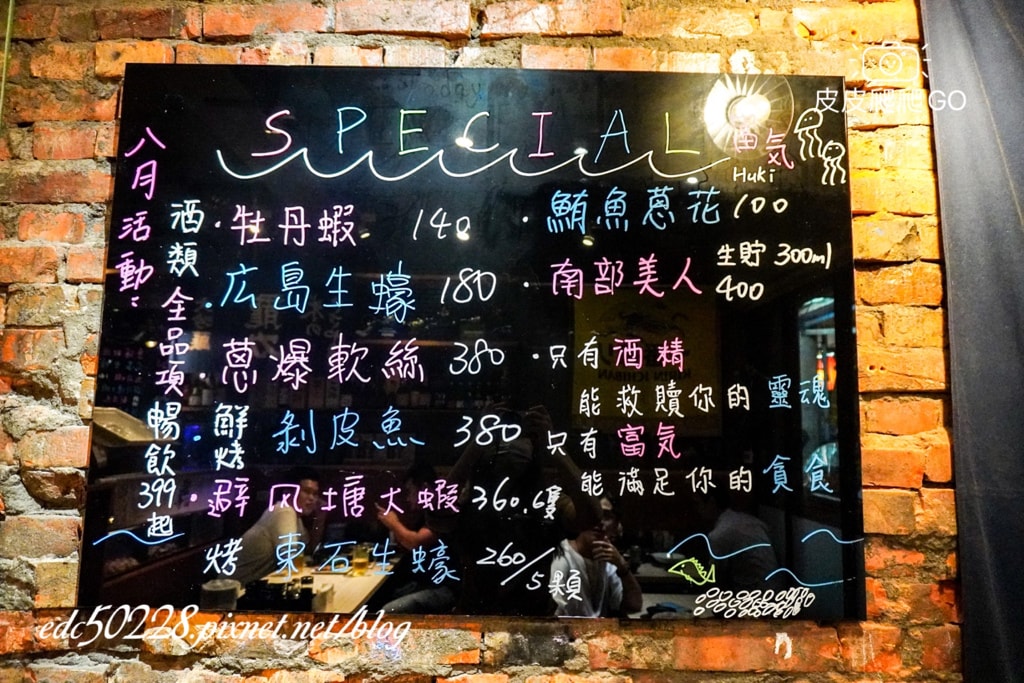 皮皮爬爬GO
SPECIAL
富気
Huki
八月活動:
酒類全品項暢飲399起
·牡丹蝦 140
·広島生蠔 180
·蔥爆軟絲 380
·鮮烤剝皮魚 380
·避风塘大蝦 360.6隻
烤東石生蠔 260/5顆
·鮪魚蔥花 100
·南部美人 生貯 300ml 400
·只有酒精
能救贖你的靈魂
只有富気
能滿足你的貪食
edc50228.pixnet.net/blog